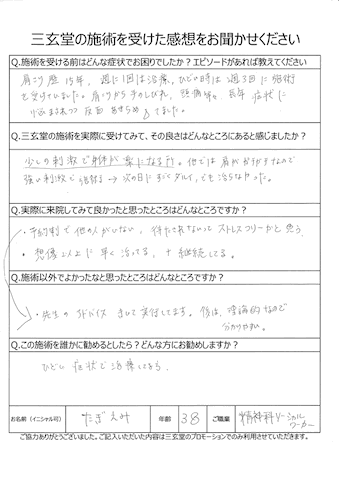 三玄堂の施術を受けた感想をお聞かせください
Q.施術を受ける前はどんな症状でお困りでしたか？エピソードがあれば教えてください
肩こり歴15年、週に1回は治療、ひどい時は週3回に施術
を受けていました。肩こりから手のしびれ、頭痛等、長年症状に
悩まされつつ反面あきらめもしてました。
Q.三玄堂の施術を実際に受けてみて、その良さはどんなところにあると感じましたか？
少しの刺激で身体が楽になる所。他では肩がかたすぎなので
強い刺激で施術→次の日にすぐダルイ、でも治らなかった。
Q.実際に来院してみて良かったと思ったところはどんなところですか？
・予約制で他の人がいない、待たされないのストレスフリーかと思う。
・想像以上に早く治ってる、+継続してる。
Q.施術以外でよかったなと思ったところはどんなところですか？
・先生のアドバイスきいて実行してます。体は、理論的なので
分かりやすい。
Q.この施術を誰かに勧めるとしたら？どんな方にお勧めしますか？
ひどい症状で治療してる方。
お名前（イニシャル可） たぎえみ 年齢 38 ご職業 精神科ソーシャル
ワーカー
ご協力ありがとうございました。ご記入いただいた内容は三玄堂のプロモーションでのみ利用させていただきます。